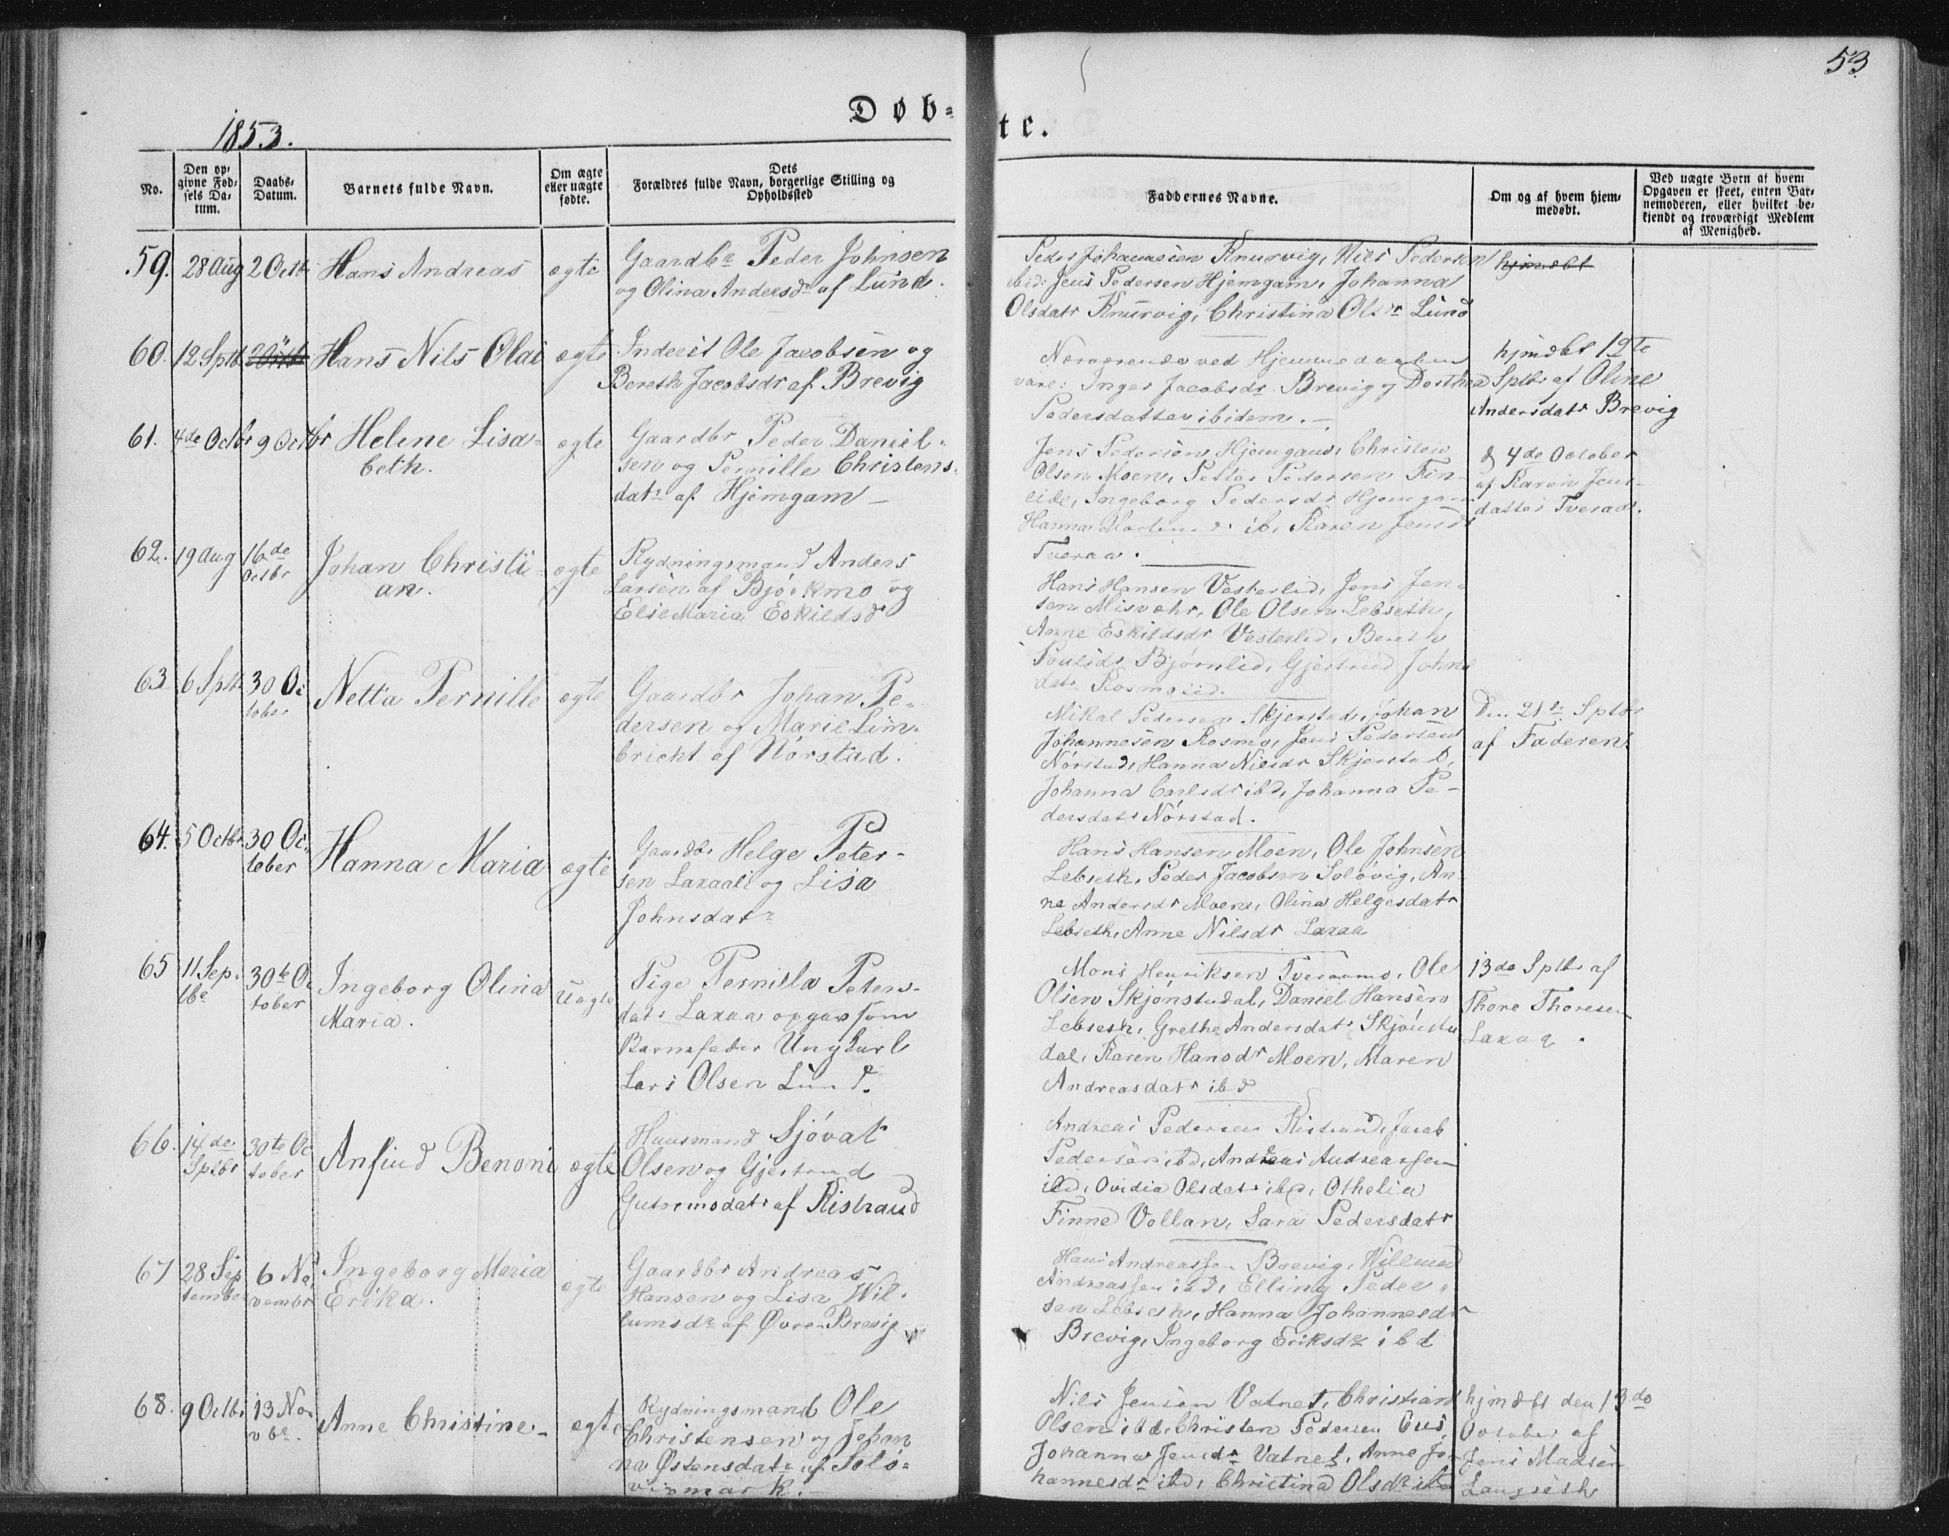 53
1853.
Døb-
te.
No.
Den op-
givne Fød-
sels Da-
tum.
Daabs-
Datum.
Barnets fulde Navn.
Om ægte
eller uægte
fødte.
Dets
Forældres fulde Navn, borgerlige Stilling og
Opholdssted
Faddernes Navne.
Om og af hvem hjem-
medøbt.
Ved uægte Børn af hvem
Opgaven er skeet, enten Bar-
nemoderen, eller hvilket be-
kjendt og troværdigt Medlem
af Menighed.
59.
28 Aug
2 Octb
Hans Andreas
ægte
Gaardbr Peder Johnsen
og Olina Andersdr af Lund.
Peder Johannesen Knurvig, Niels Pedersen
ibid. Jens Pedersen Hjemgam, Johanna
Olsdatr Knurvig, Christina Olsdr Lund
hjmdbt
60.
12 Sptb
Hans Nils Olai
ægte
Inderst Ole Jacobsen og
Bereth Jacobsdr af Brevig
Nærværende ved Hjemmedaaben
vare: Inger Jacobsdr Brevig og Dorthea
Pedersdatter ibidem.
hjmdbt 12te
Sptbr af Oline
Andersdatr Brevig
61.
4de Octbr
9 Octbr
Helene Lisa-
beth.
ægte
Gaardbr Peder Daniel-
sen og Pernille Christens-
datr af Hjemgam
Jens Pedersen Hjemgam, Christen
Olsen Moen, Petter Pedersen Fin-
eide, Ingeborg Pedersdr Hjemgam
Hanna ib, Karen Jensdr
Tveraa.
d 4de October
af Karen Jens-
datter Tveraa.
62.
19 Aug
16de
Octbr
Johan Christi-
an.
ægte
Rydningsmand Anders
Larsen af Bjørkmo og
Else Maria Eskildsd
Hans Hansen Vesterlid, Jens Jen-
sen Misvær, Ole Olsen Lebseth,
Anne Eskildsdr Vesterlid, Bereth
Poulsdr Bjørnlid, Gjertrud Johns
datr Rosmolid.
63
6 Sptb
30 Oc
tober
Netta Pernille
ægte
Gaardbr Johan Pe-
dersen og Marie Lim-
bricht af Nørstad.
Mikal Pedersen Skjerstad, Johan
Johannesen Rosmo, Jens Pedersen
Nørstad, Hanna Nielsdr Skjerstad,
Johanna Carlsdr ibd, Johanna Pe-
dersdatr Nørstad.
Den 21de Sptbr
af Faderen
64.
5 Octbr
30 Oc
tober
Hanna Maria
ægte
Gaardbr Helge Peter-
sen Laxaali og Lisa
Johnsdatr
Hans Hansen Moen, Ole Johnsen
Lebseth, Peder Jacobsen Soløvig, An
ne Andersdr Moen, Olina Helgesdatr
Lebseth, Anne Nilsdr Laxaa
65
11 Sep.
tbr
30te Oc
tober
Ingeborg Olina
Maria.
uægte
Pige Pernilla Peters-
datr Laxaa opgav som
Barnefader Ungkarl
Lars Olsen Lund.
Mons Henriksen Tveraamo, Ole
Olsen Skjønstudal, Daniel Hansen
Lebseth, Grethe Andersdatr Skjønstu
dal, Karen Hansdr Moen, Maren
Andreasdatr ibd
13de Sptbr af
Thore Thoresen
Laxaa.
66.
14de
Sptbr
30te Oc
tober
Anfind Benoni
ægte
Huusmand Sjøvat
Olsen og Gjertrud
Guttormsdatr af Ristraud
Andreas Pedersen Ristraud, Jacob
Pedersen ibd, Andreas Andreassen
ibd, Ovidia Olsdatr ibd, Othelia
Finne Vollan, Sara Pedersdatr
67
28 Sep
tember
6 No
vembr
Ingeborg Maria
Erika.
ægte
Gaardbr Andreas
Hansen og Lisa Wil-
lumsdr af Øvre Brevig
Hans Andreassen Brevig, Willum
Andreassen ibd, Elling Peder-
sen Lebseth, Hanna Johannesdr
Brevig, Ingeborg Eriksdr ibd
68.
9 Octbr
13 No-
vbr.
Anne Christine
ægte
Rydningsmand Ole
Christensen og Johan
na Østensdatr af Solø-
vigmark.
Nils Jensen Vatnet, Christian
Olsen ibd, Christen Pedersen
Johanna Jensdr Vatnet, Anne Jo
hannesdr ibd, Christina Olsdr ibd
hjmdbt den 13de
October af
Jens Madsen
Langseth